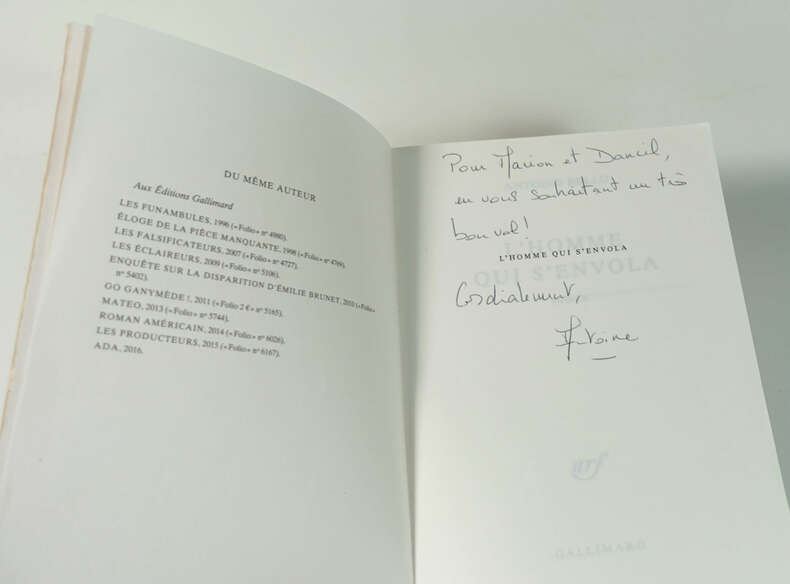 DU MÊME AUTEUR
Aux Éditions Gallimard
LES FUNAMBULES, 1996 (« Folio » nº 4980).
ÉLOGE DE LA PIÈCE MANQUANTE, 1998 (« Folio » nº 4769).
LES FALSIFICATEURS, 2007 (« Folio » nº 4727).
LES ÉCLAIREURS, 2009 (« Folio » nº 5106).
ENQUÊTE SUR LA DISPARITION D'ÉMILIE BRUNET, 2010 (« Folio »
nº 5402).
GO GANYMÈDE !, 2011 (« Folio 2 € » nº 5165).
MATEO, 2013 (« Folio » nº 5744).
ROMAN AMÉRICAIN, 2014 (« Folio » nº 6026).
LES PRODUCTEURS, 2015 (« Folio » nº 6167).
ADA, 2016.
Pour Marion et Daniel,
en vous souhaitant un très
bon vol !
L'HOMME QUI S'ENVOLA
Cordialement,
Antoine
ANTOINE BELLO
L'HOMME
QUI S'ENVOLA
nrf
GALLIMARD